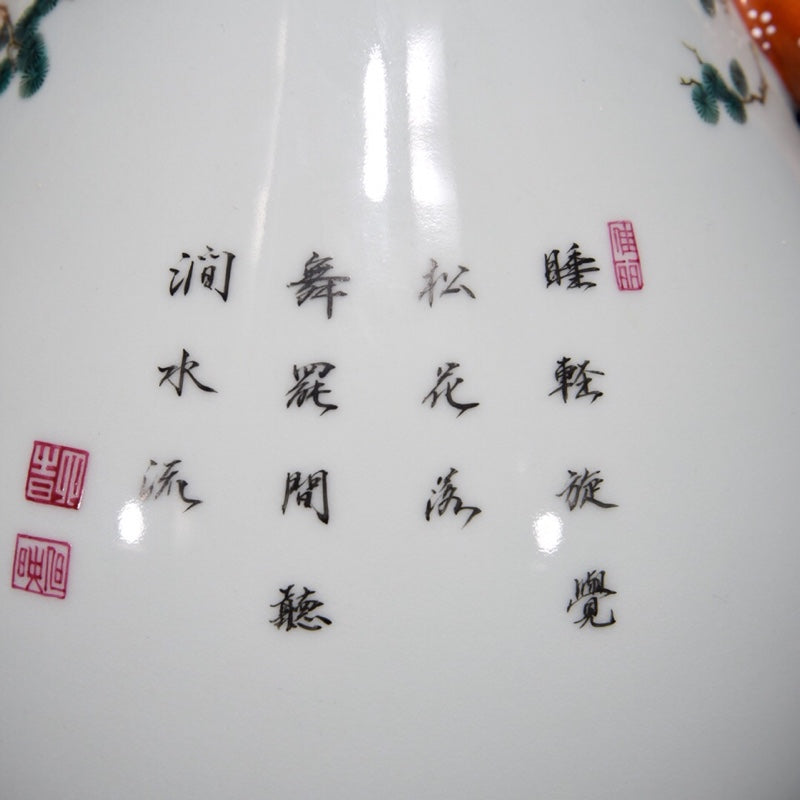 睡軽旋覺
松花落
舞罷間聽
澗水流